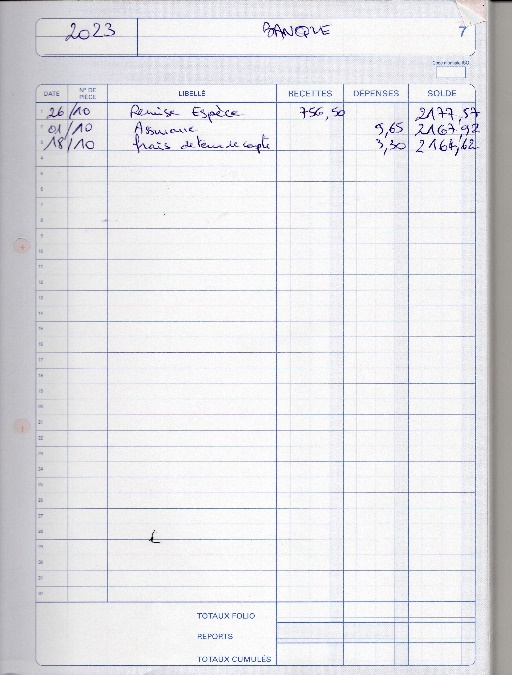 2023 BANQUE 7
DATE N° DE PIÈCE LIBELLÉ RECETTES DÉPENSES SOLDE
1 26/10 Remise Espèce 756,50 2177,57
2 01/10 Assurance 9,65 2167,92
3 18/10 frais de tenue de compte 3,30 2164,62
4
5
6
7
8
9
10
11
12
13
14
15
16
17
18
19
20
21
22
23
24
25
26
27
28
29
30
31
32
TOTAUX FOLIO
REPORTS
TOTAUX CUMULÉS